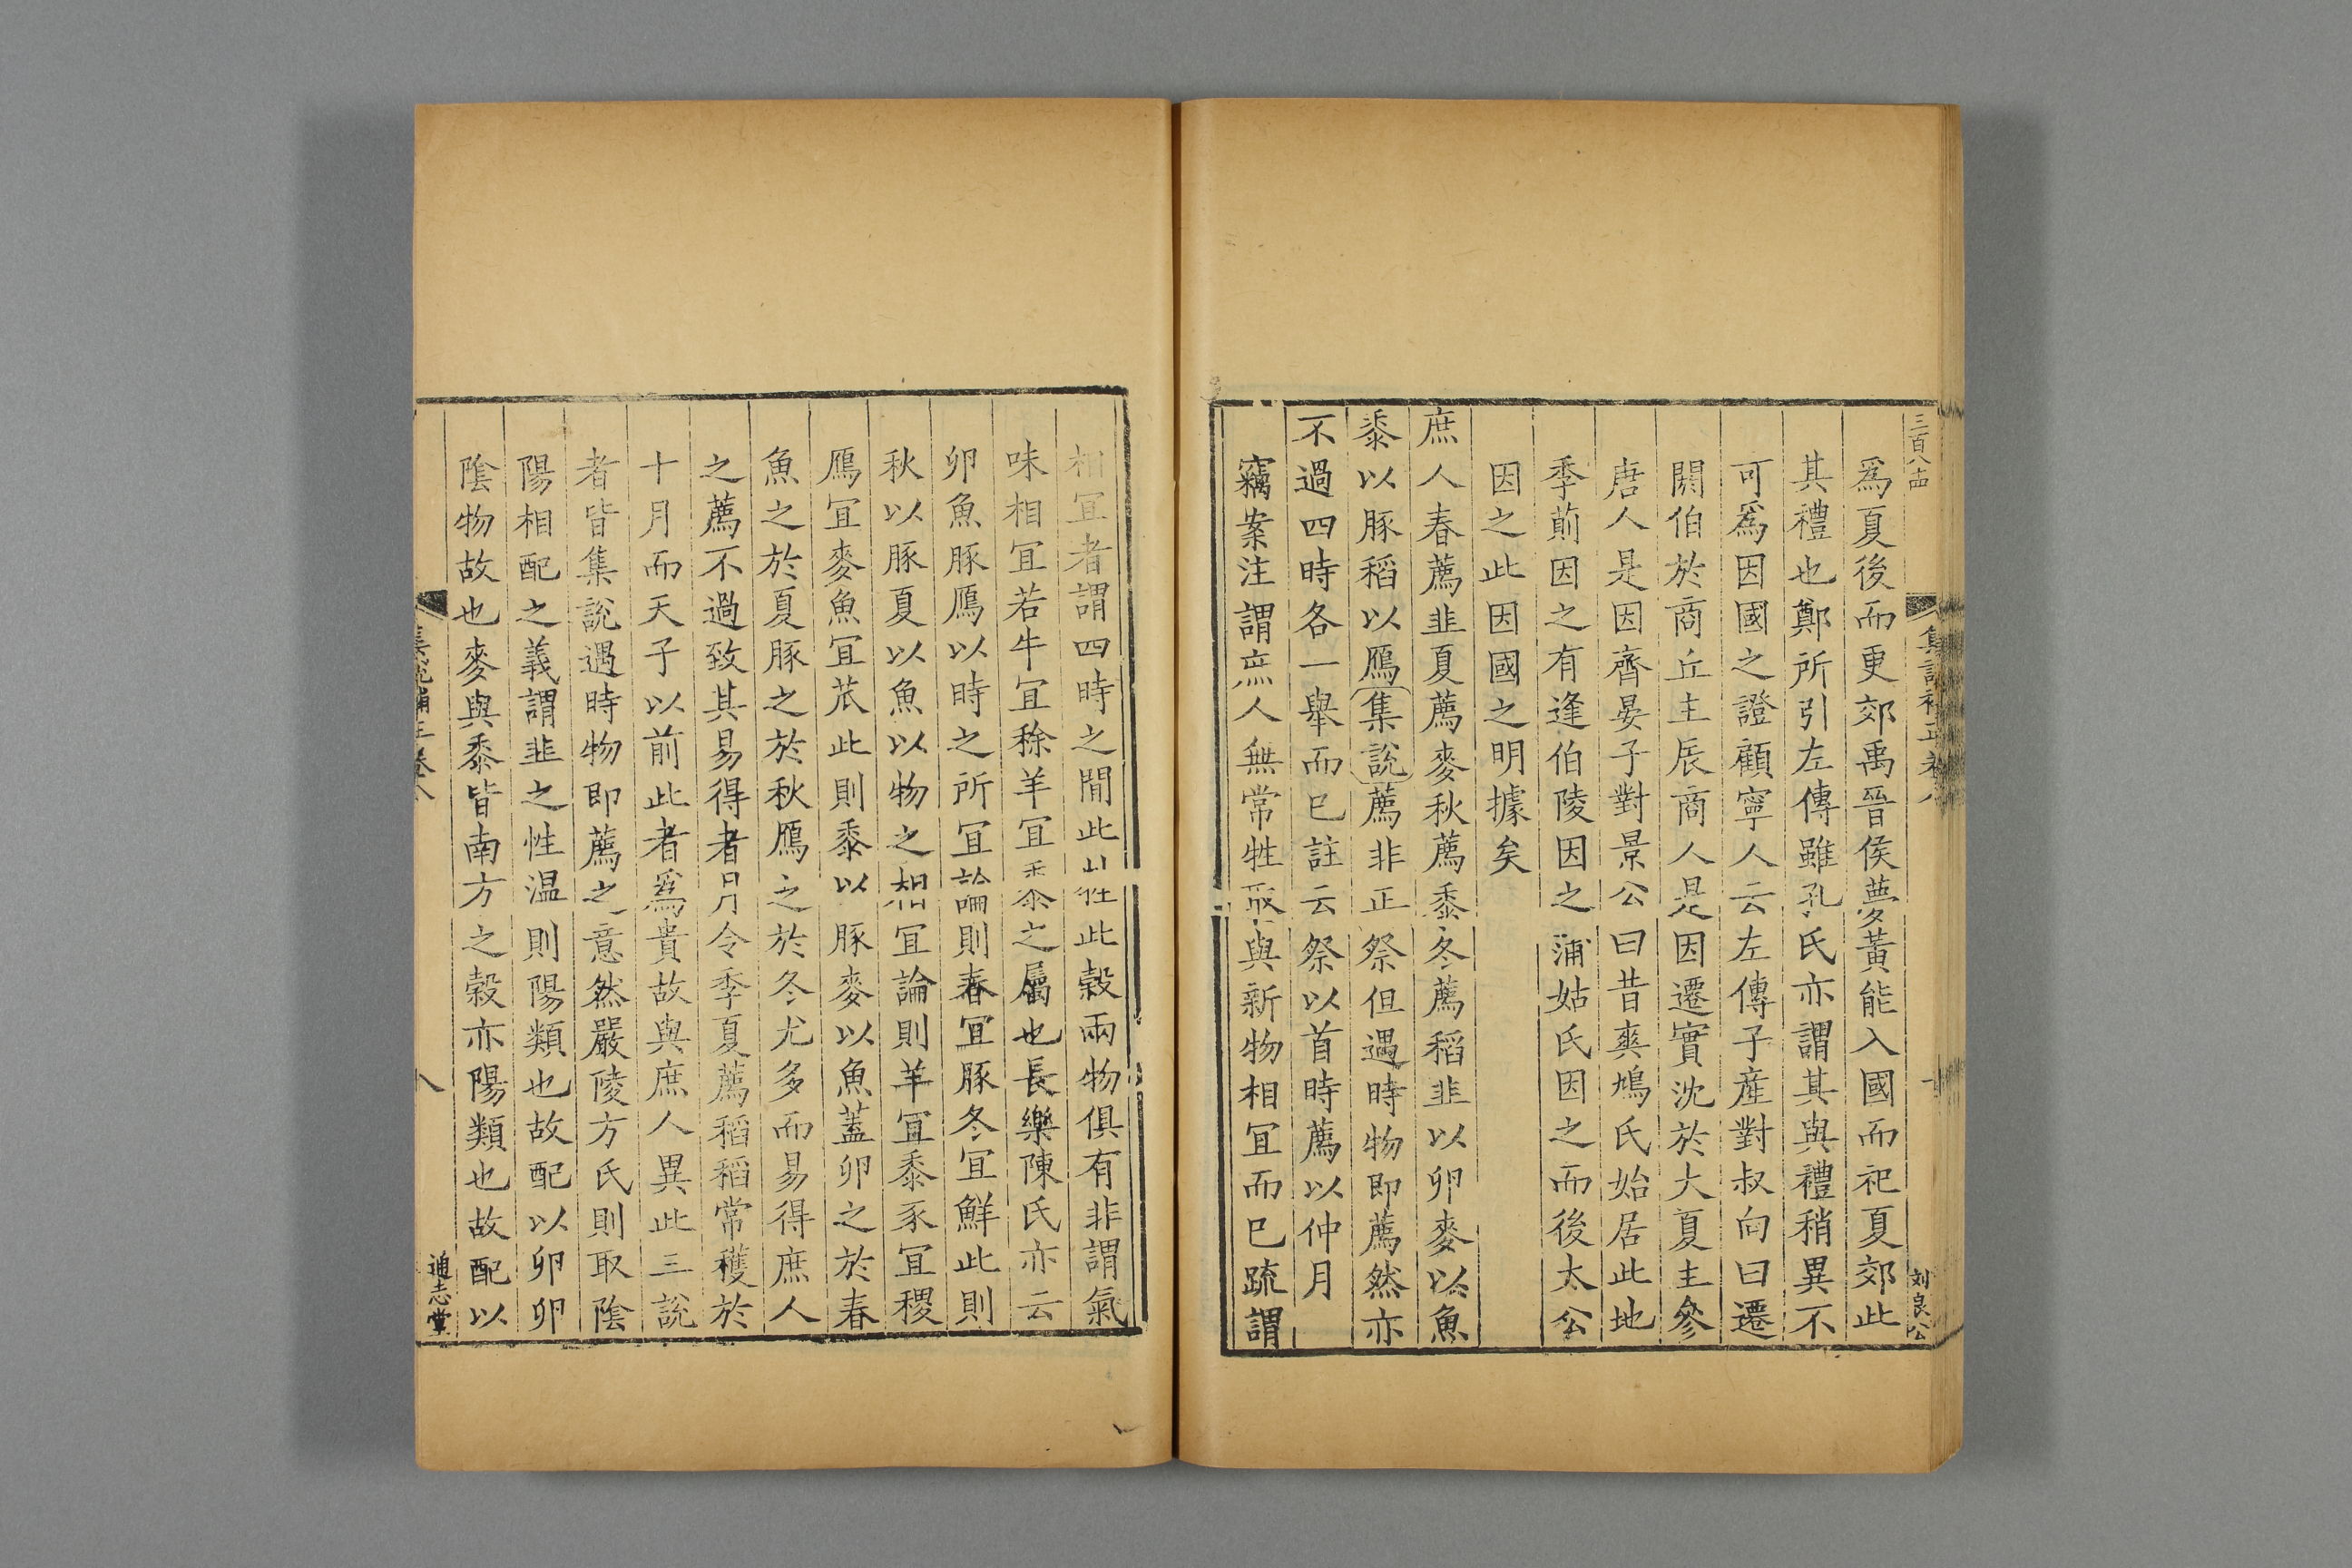 三百八十四
劉良公
爲夏後而更郊禹晉侯夢黃能入國而祀夏郊此
其禮也鄭所引左傳雖孔氏亦謂其與禮稍異不
可爲因國之證顧寧人云左傳子產對叔向曰遷
閼伯於商丘主辰商人是因遷實沈於大夏主參
唐人是因齊晏子對景公曰昔爽鳩氏始居此地
季萴因之有逢伯陵因之蒲姑氏因之而後太公
因之此因國之明據矣
庶人春薦韭夏薦麥秋薦黍冬薦稻韭以卵麥以魚
黍以豚稻以鴈集說薦非正祭但遇時物即薦然亦
不過四時各一舉而已註云祭以首時薦以仲月
竊案注謂庶人無常牲取與新物相宜而已疏謂
相宜者謂四時之間此牲此穀兩物俱有非謂氣
味相宜若牛宜稌羊宜黍之屬也長樂陳氏亦云
卵魚豚鴈以時之所宜論則春宜豚冬宜鮮此則
秋以豚夏以魚以物之相宜論則羊宜黍豕宜稷
鴈宜麥魚宜苽此則黍以豚麥以魚蓋卵之於春
魚之於夏豚之於秋鴈之於冬尤多而易得庶人
之薦不過致其易得者月令季夏薦稻稻常穫於
十月而天子以前此者爲貴故與庶人異此三說
者皆集說遇時物即薦之意然嚴陵方氏則取陰
陽相配之義謂韭之性温則陽類也故配以卵卵
陰物故也麥與黍皆南方之穀亦陽類也故配以
集說補正卷八
八
通志堂